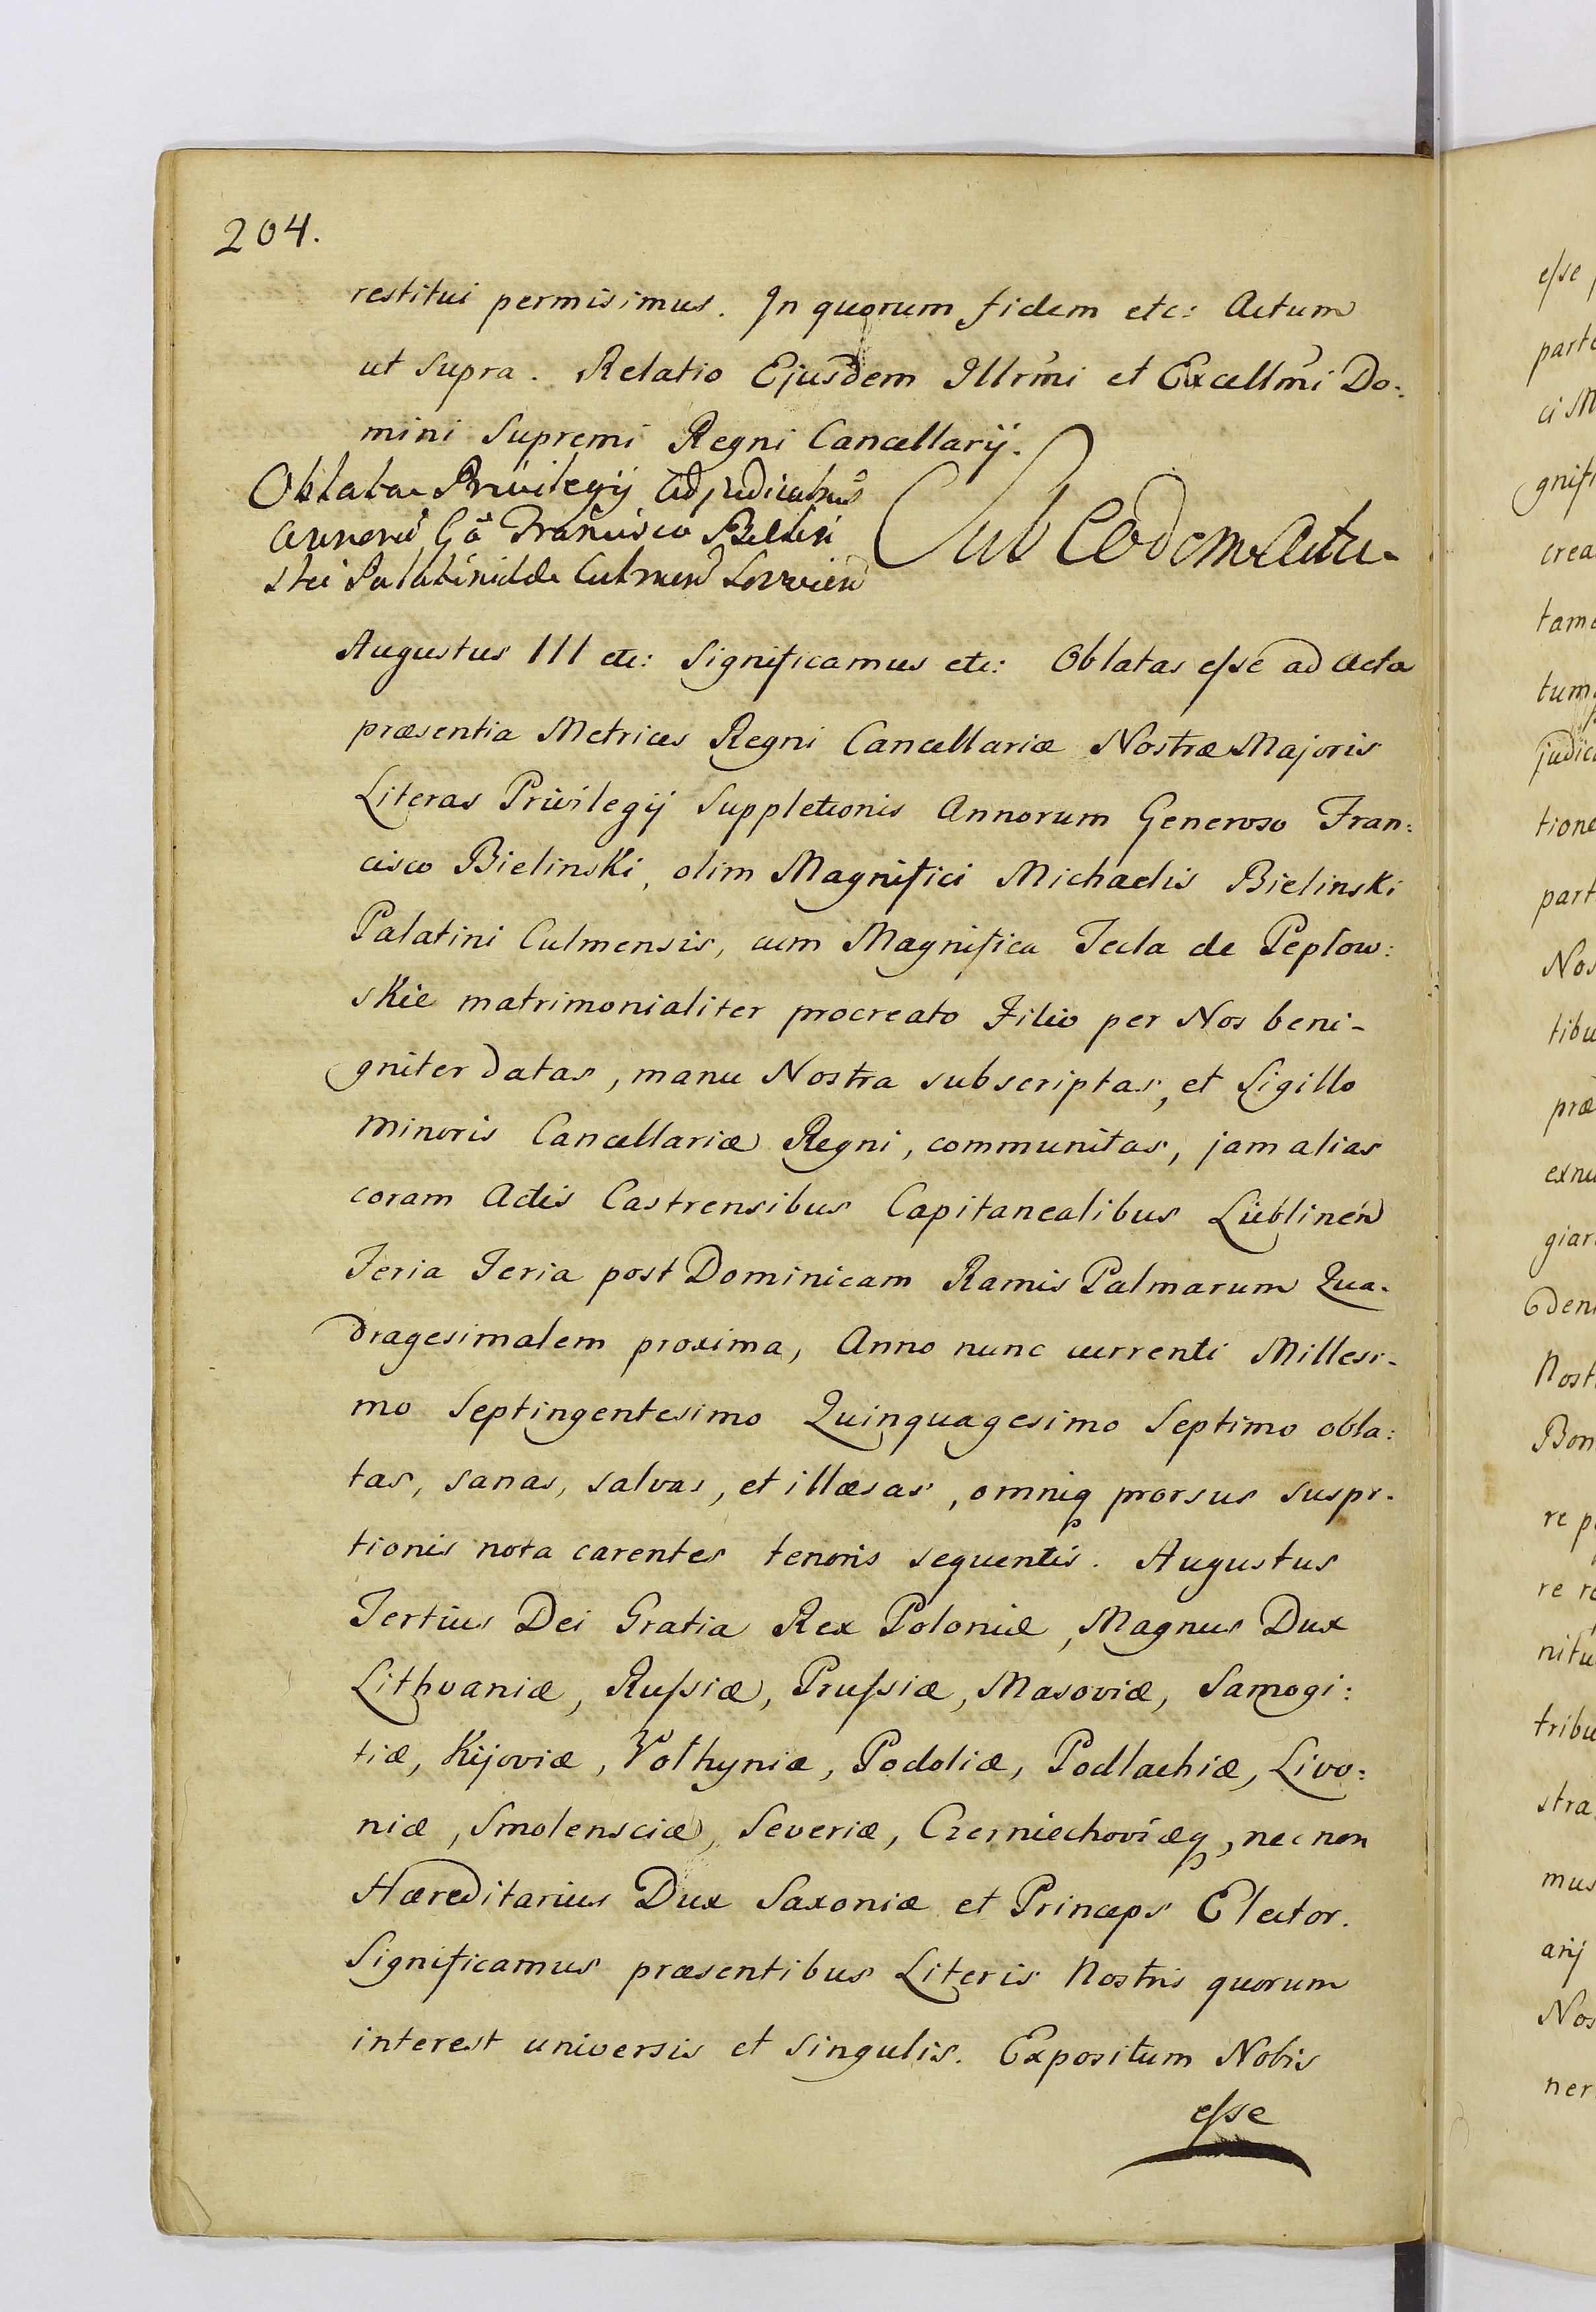 204.
restitui permisimus. In quorum fidem etc: Actum
ut supra. Relatio Ejusdem Illrmi et Excellmi Do:
mini Supremi Regni Cancellarij.
Oblata Privilegij
Sub Eodem Actu
Annorũ Gõ Francisco Bielin
skii Palatinidae Culmen
Augustus III etc: Significamus etc: Oblatas esse ad Acta
præsentia Metrices Regni Cancellariæ Nostræ Majoris
Literas Privilegij Suppletionis Annorum Generoso Fran:
cisco Bielinski, olim Magnifici Michaelis Bielinski
Palatini Culmensis, cum Magnifica Tecla de Peplow:
skie matrimonialiter procreato Filio per Nos beni-
gniter datas, manu Nostra subscriptas, et Sigillo
minoris Cancellariæ Regni, communitas, jam alias
coram Actis Castrensibus Capitanealibus Lublinen
Feria Teria post Dominicam Ramis Palmarum Qua-
dragesimalem proxima, Anno nunc currenti Millesi-
mo Septingentesimo Quinquagesimo Septimo obla:
tas, sanas, salvas, et illæsas, omniq prorsus suspi-
tionis nota carentes tenoris sequentis. Augustus
Tertius Dei Gratia Rex Poloniæ, Magnus Dux
Lithvaniæ, Russiæ, Prussiæ, Masoviæ, Samogi:
tiæ, Kijoviæ, Volhyniæ, Podoliæ, Podlachiæ, Livo:
niæ, Smolensciæ, Severiæ, Czerniechoviæq, nec non
Hæreditarius Dux Saxoniæ et Princeps Elector.
Significamus præsentibus Literis Nostris quorum
interest universis et singulis. Expositum Nobis
esse